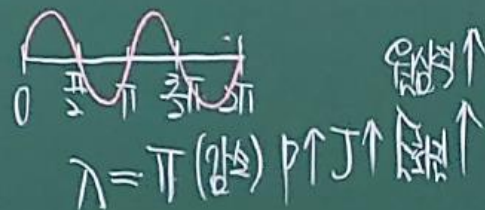 0 π/2 π 3/2π 2π
↑
λ = π (감소) P↑ J↑ ↑